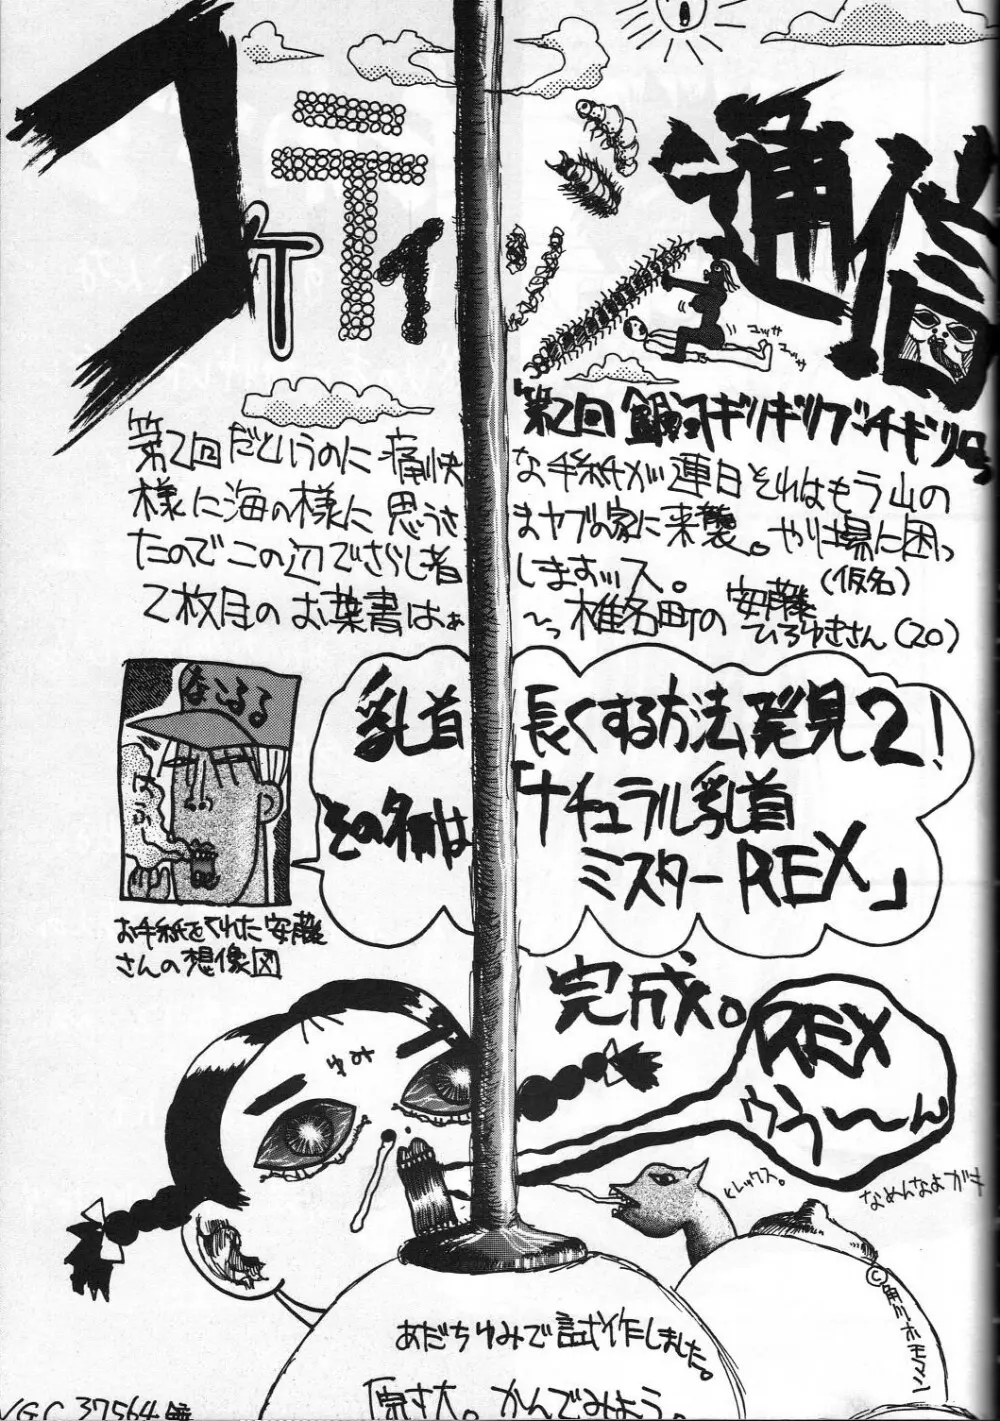 通信
「第2回 ギリギリブッチギリ号
第2回だというのに痛快な手紙が連日それはもう山の
様に海の様に思うさまヤブの家に来襲。やり場に困っ
たのでこの辺でさらし者しますッス。
2枚目のお葉書はぁ〜っ椎名町の安藤ひろゆきさん(20)
(仮名)
コッサ
コッサ
なごるる
はふ
乳首長くする方法発見2!
その名は「ナチュラル乳首
ミスターREX」
お手紙をくれた安藤
さんの想像図
完成。
REX
ゥうーーん
ゆみ
ヒレックス。
なめんなよガキ
あだちゆみで試作しました。
原寸大。かんでみよう。
VGC 37564